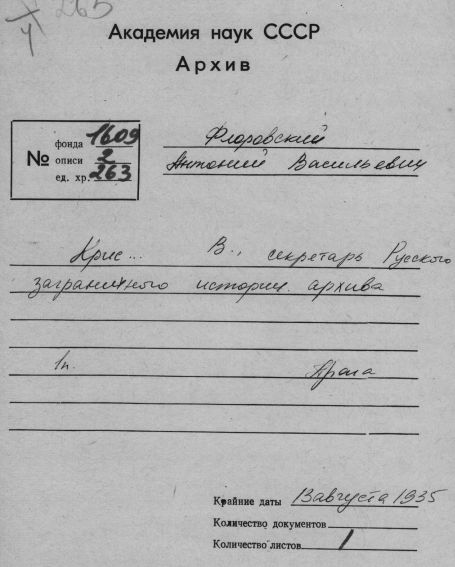 265
4
Академия наук СССР
Архив
№ фонда 1609
описи 2
ед. хр. 263
Флоровский
Антоний Васильевич
Крис... В., секретарь Русского
заграничного историч. архива
1п. Прага
Крайние даты 13 августа 1935
Количество документов
Количество листов 1